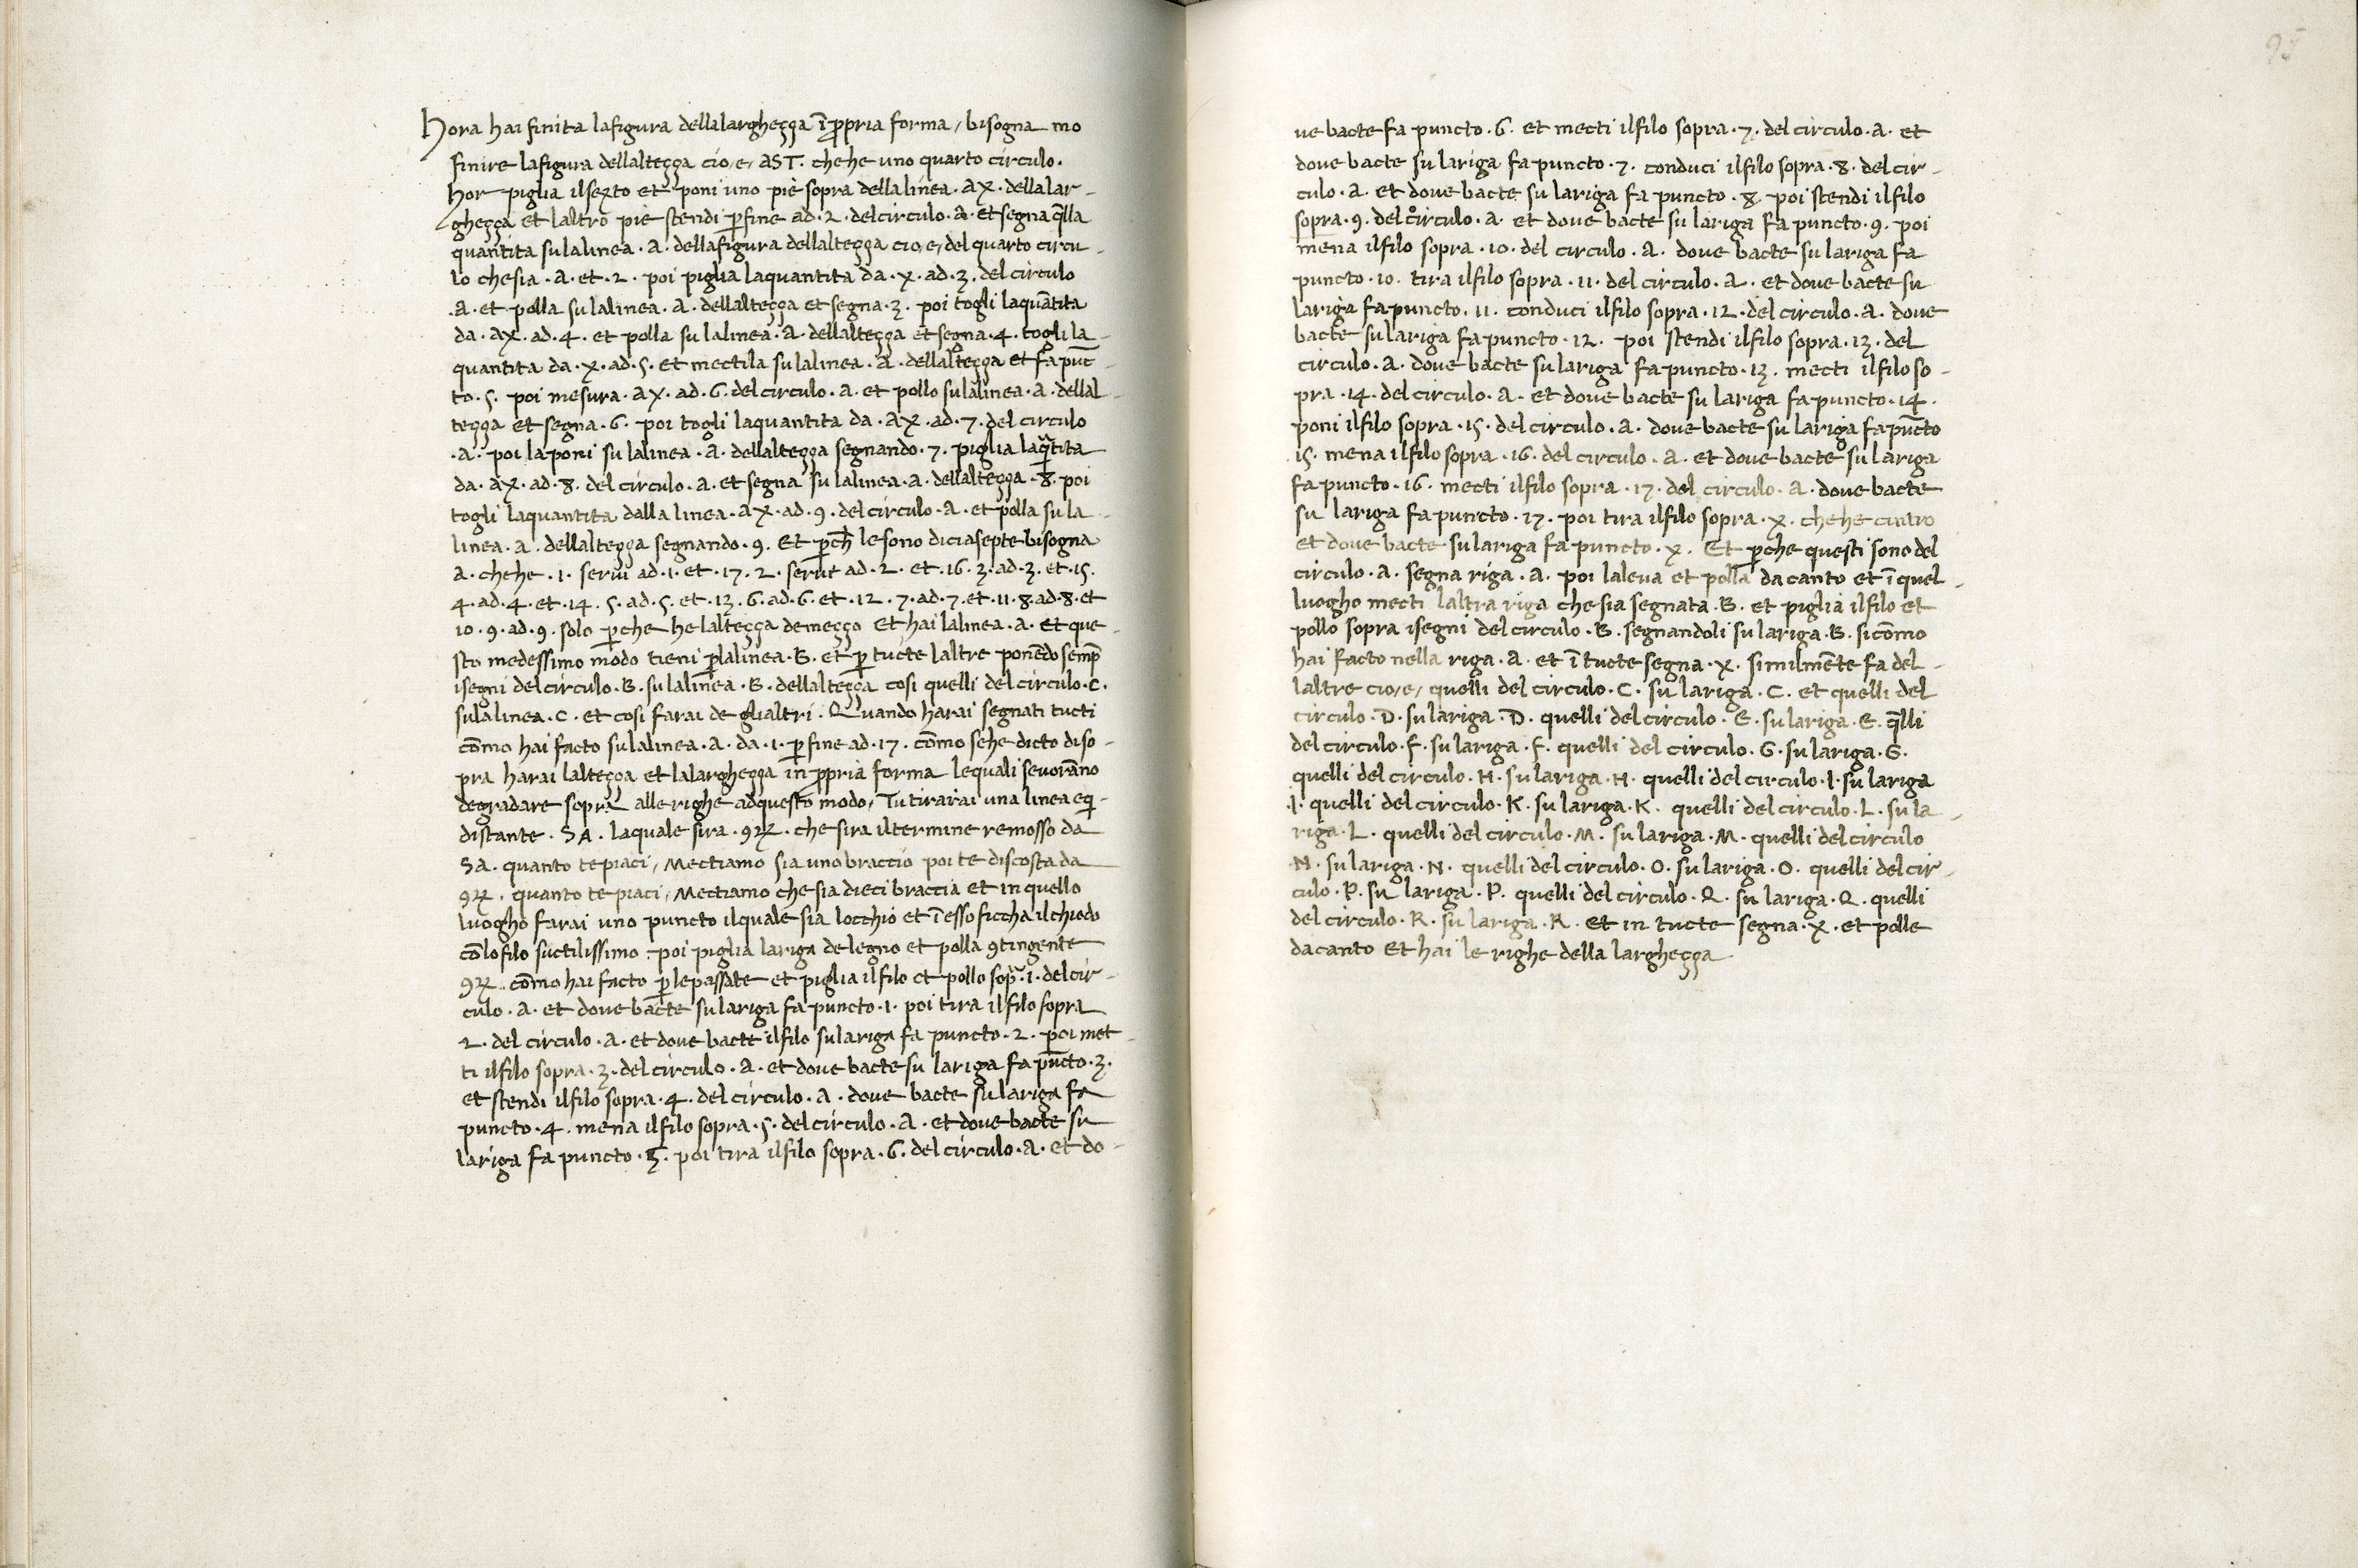 Hora hai finita lafigura dellalargheçça ī p̱pria forma / bisogna mo
finire lafigura dellalteçça cio/e/ AST. chehe uno quarto circulo.
hor piglia il sexto et poni uno piè sopra dellalinea .AX. dellalar-
gheçça et laltro piè stendi ꝑfine ad .2. delcirculo .A. et segna q̄lla
quantita sulalinea .A. dellafigura dellalteçça cio/e/ del quarto circu-
lo chesia .A. et .2. poi piglia laquantita da .X. ad .3. del circulo
.A. et polla sulalinea .A. dellalteçça et segna .3. poi togli laquātita
da .AX. ad .4. et polla su lalinea .A. dellalteçça et segna .4. togli la-
quantita da .X. ad .5. et mectila sulalinea .A. dellalteçça et fa puc̄-
to .5. poi mesura .AX. ad .6. delcirculo .A. et pollo sulalinea .A. dellal-
teçça et segna .6. poi togli laquantita da .AX. ad .7. del circulo
.A. poi laponi su lalinea .A. dellalteçça segnando .7. piglia laq̄tita
da .AX. ad .8. del circulo .A. et segna su lalinea .A. dellalteçça .8. poi
togli laquantita dalla linea .AX. ad .9. del circulo .A. et polla su la-
linea .A. dellalteçça segnando .9. Et ꝑch̄ le sono diciasepte bisogna
A. chehe .1. servi ad .1. et .17. 2. serve ad .2. et .16. 3. ad .3. et .15.
4. ad .4. et .14. 5. ad .5. et .13. 6. ad .6. et .12. 7. ad .7. et .11. 8. ad .8. et
10. 9. ad .9. solo ꝑche he lalteçça demeçço Et hai lalinea .A. et que-
sto medessimo modo tieni ꝑ lalinea .B. et ꝑ tucte laltre ponēdo semp̄
isegni del circulo .B. su lalinea .B. dellalteçça cosi quelli del circulo .C.
sulalinea .C. et cosi farai de glialtri. Quando harai segnati tucti
cōmo hai facto su lalinea .A. da .1. ꝑ fine ad .17. cōmo sehe dicto diso-
pra harai lalteçça et lalargheçça in p̱pria forma lequali sevorāno
degradare sopra alle righe adquesto modo / Tu tirarai una linea eq̄-
distante .SA. laquale sira .9ꝝ. che sira iltermine remosso da
SA. quanto tepiaci / Mectiamo sia uno braccio poi te discosta da
9ꝝ. quanto te piaci / Mectiamo che sia dieci braccia et in quello
luogho farai uno puncto ilquale sia locchio et ī esso ficcha il chiodo
cōlo filo suctilissimo. poi piglia lariga de legno et polla 9tingente
9ꝝ. cōmo hai facto ꝑ lepassate et piglia il filo et pollo sop̄ .1. del cir-
culo .A. et dove bacte su lariga fa puncto .1. poi tira il filo sopra
2. del circulo .A. et dove bacte ilfilo sulariga fa puncto .2. poi met-
ti ilfilo sopra .3. del circulo .A. et dove bacte su lariga fa pūcto .3.
et stendi ilfilo sopra .4. del circulo .A. dove bacte su lariga fa
puncto .4. mena ilfilo sopra .5. del circulo .A. et dove bacte su
lariga fa puncto .5. poi tira ilfilo sopra .6. del circulo .A. et do-
95
ve bacte fa puncto .6. et mecti ilfilo sopra .7. del circulo .A. et
dove bacte su lariga fa puncto .7. conduci ilfilo sopra .8. del cir-
culo .A. et dove bacte su lariga fa puncto .8. poi stendi ilfilo
sopra .9. del circulo .A. et dove bacte su lariga fa puncto .9. poi
mena ilfilo sopra .10. del circulo .A. dove bacte su lariga fa
puncto .10. tira ilfilo sopra .11. del circulo .A. et dove bacte su
lariga fa puncto .11. conduci ilfilo sopra .12. del circulo .A. dove
bacte su lariga fa puncto .12. poi stendi ilfilo sopra .13. del
circulo .A. dove bacte su lariga fa puncto .13. mecti ilfilo so-
pra .14. del circulo .A. et dove bacte su lariga fa puncto .14.
poni ilfilo sopra .15. del circulo .A. dove bacte su lariga fa pūcto
15. mena ilfilo sopra .16. del circulo .A. et dove bacte su lariga
fa puncto .16. mecti ilfilo sopra .17. del circulo .A. dove bacte
su lariga fa puncto .17. poi tira ilfilo sopra .X. chehe cintro
et dove bacte su lariga fa puncto .X. Et ꝑche questi sono del
circulo .A. segna riga .A. poi laleva et polla da canto et ī quel-
luogho mecti laltra riga che sia segnata .B. et piglia ilfilo et
pollo sopra isegni del circulo .B. segnandoli su lariga .B. si cōmo
hai facto nella riga .A. et ī tucte segna .X. similmēte fa del-
laltre cio/e/ quelli del circulo .C. su lariga .C. et quelli del
circulo .D. su lariga .D. quelli del circulo .E. su lariga .E. q̄lli
del circulo .F. su lariga .F. quelli del circulo .G. su lariga .G.
quelli del circulo .H. su lariga .H. quelli del circulo .I. su lariga
.I. quelli del circulo .K. su lariga .K. quelli del circulo .L. su la-
riga .L. quelli del circulo .M. su lariga .M. quelli del circulo
N. su lariga .N. quelli del circulo .O. su lariga .O. quelli del cir-
culo .P. su lariga .P. quelli del circulo .Q. su lariga .Q. quelli
del circulo .R. su lariga .R. Et in tucte segna .X. et polle
dacanto Et hai le righe della largheçça